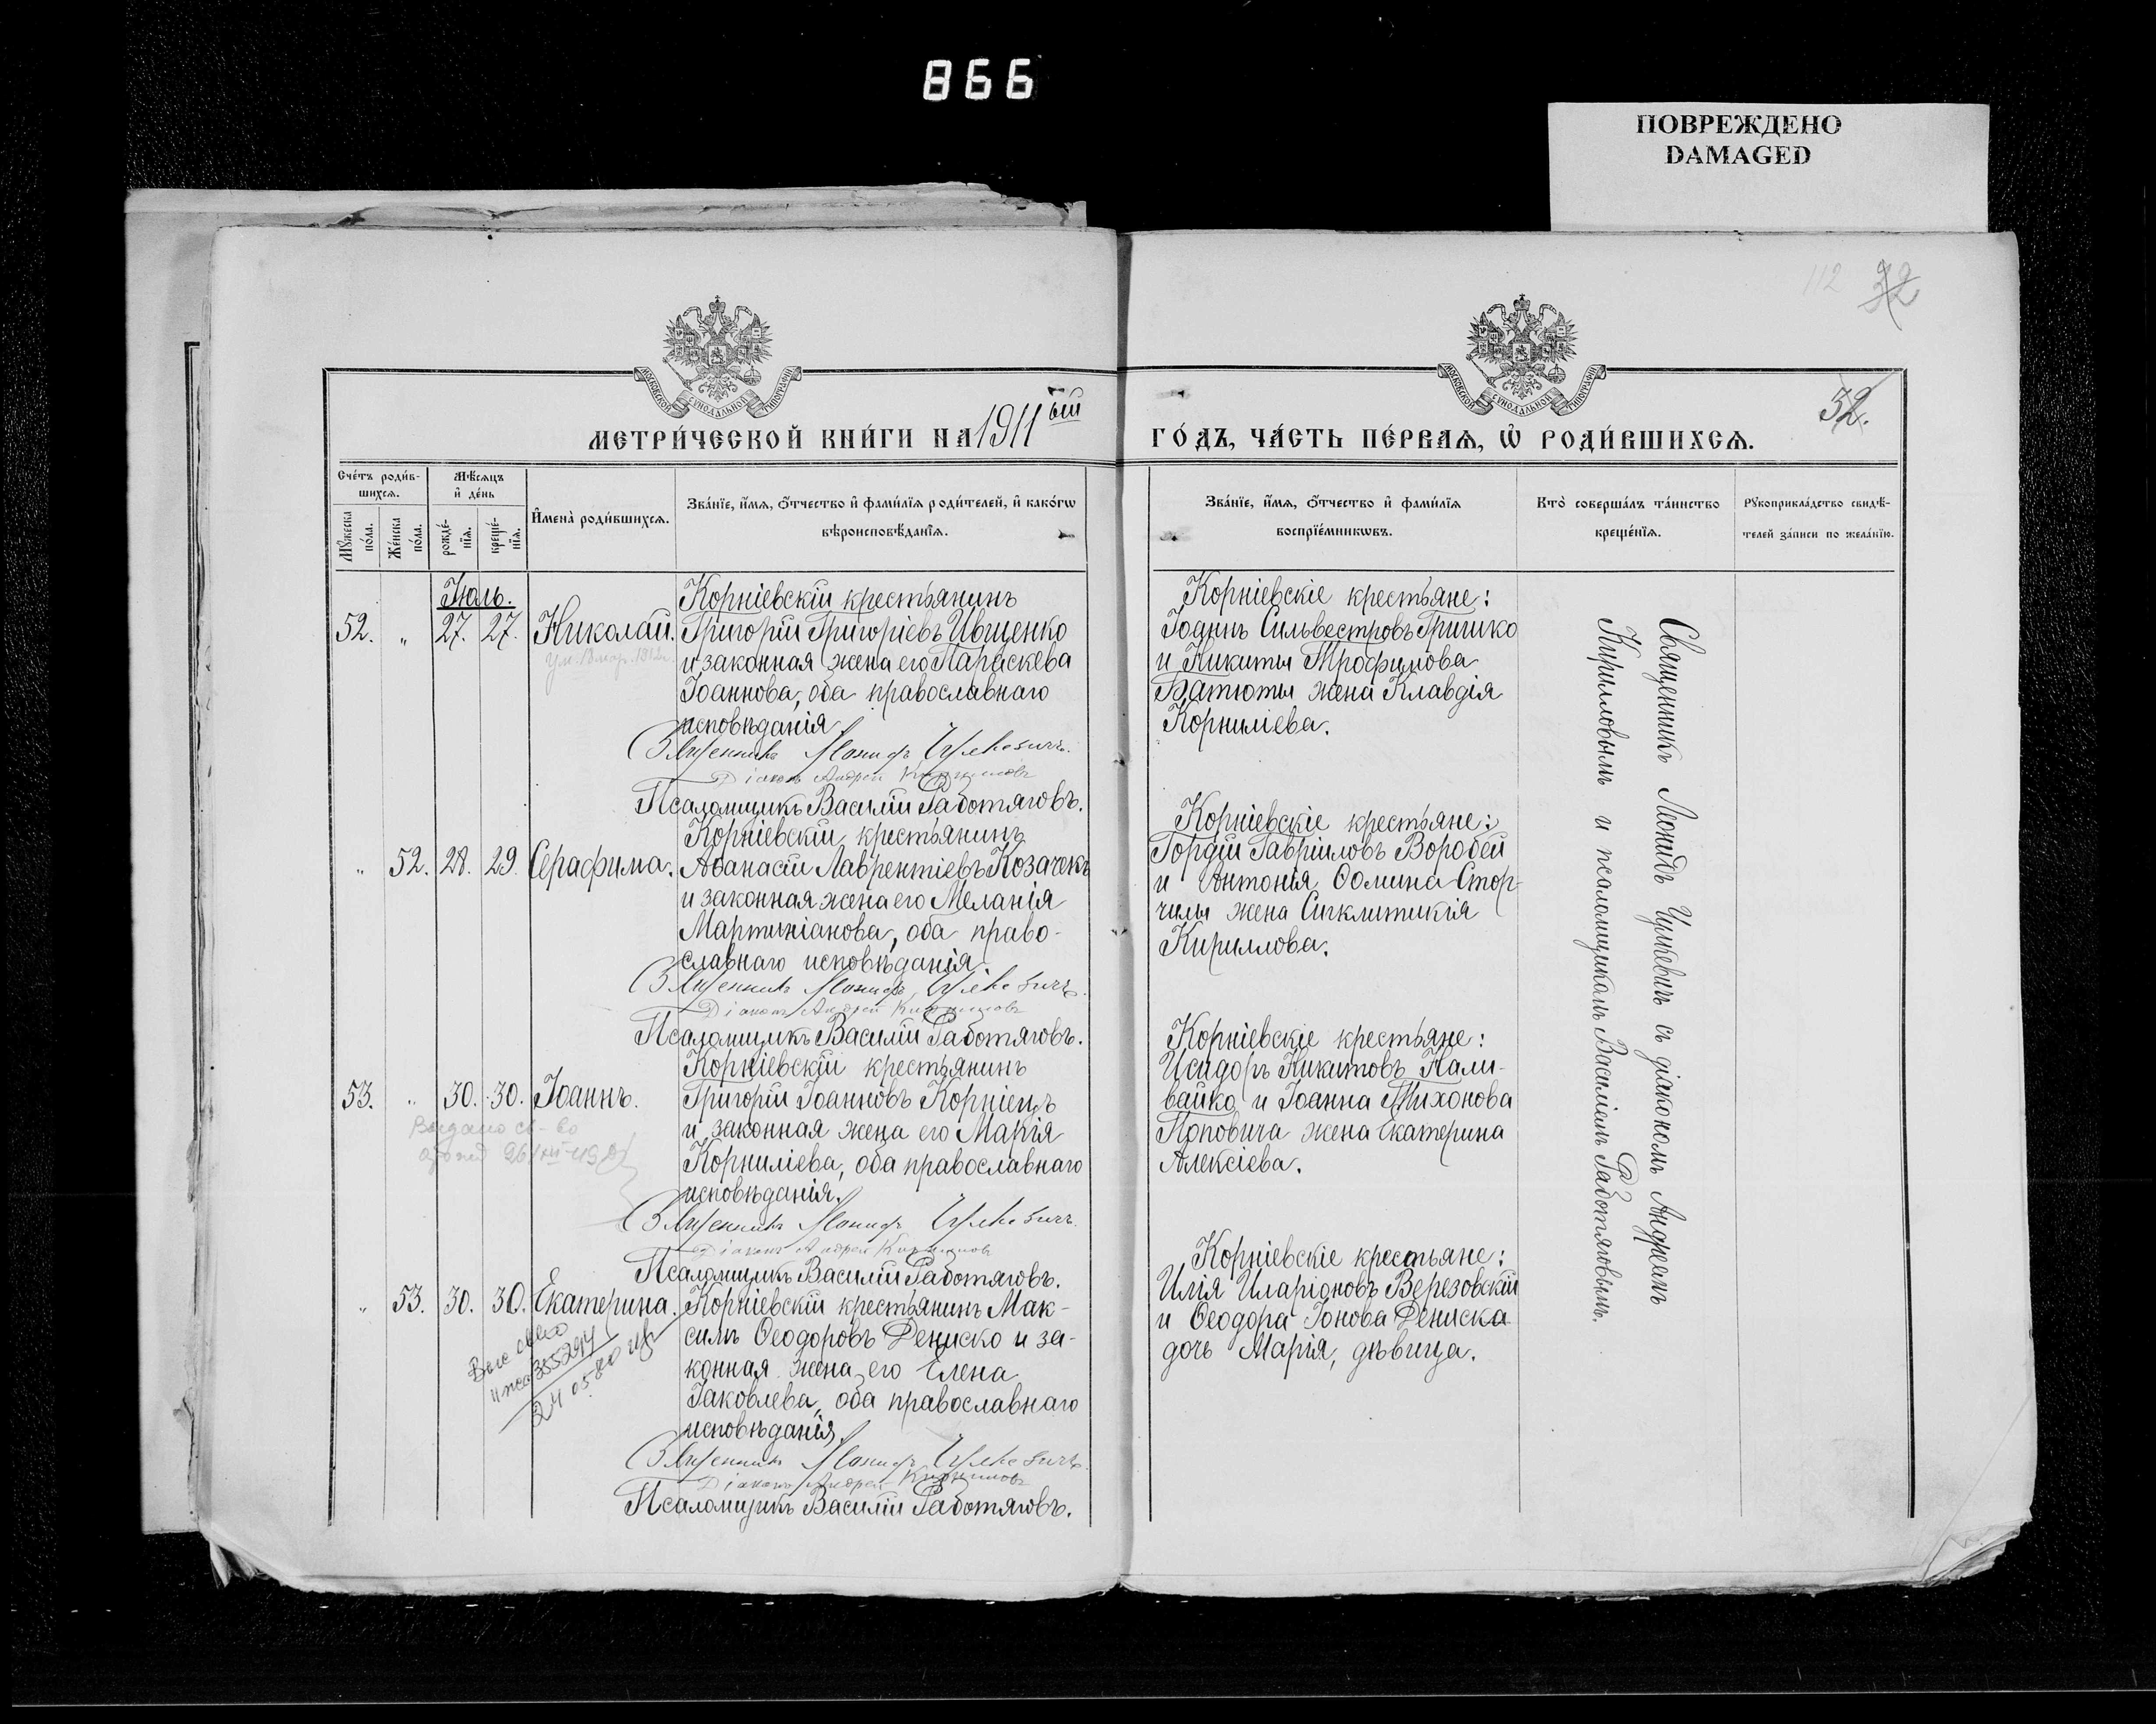 866
ПОВРЕЖДЕНО
DAMAGED
112 32
МОСКОВСКОЙ СУНОДАЛЬНОЙ ТИПОГРАФIИ
МОСКОВСКОЙ СУНОДАЛЬНОЙ ТИПОГРАФIИ
52.
МЕТРИ́ЧЕСКОЙ КНИ́ГИ НА 1911ый
ГО́ДЪ, ЧА́СТЬ ПЕ́РВАѦ, Ѡ҆ РОДИ́ВШИХСѦ.
Сче́тъ роди́в-
шихсѧ.
Мꙋ́жеска по́ла.
Же́нска по́ла.
Мѣ́сѧцъ
и҆ де́нь
рожде́-
нїѧ.
креще́-
нїѧ.
И҆мена̀ роди́вшихсѧ.
Зва́нїе, и҆́мѧ, ѻ҆́тчество и҆ фами́лїѧ роди́телей, и҆ како́гѡ
вѣроисповѣ́данїѧ.
Зва́нїе, и҆́мѧ, ѻ҆́тчество и҆ фами́лїѧ
воспрїе́мникѡвъ.
Кто̀ соверша́лъ та́инство
креще́нїѧ.
Рꙋкоприкла́дство свидѣ́-
телей за́писи по жела́нїю.
Іюль.
52. " 27. 27. Николай.
Ум. 1912г.
Корніевскій крестьянинъ
Григорій Григоріевъ Ивщенко
и законная жена его Параскева
Іоаннова, оба православнаго
исповѣданія.
Священникъ Леонидъ Цулкевичъ.
Діаконъ Андрей Кирилловъ
Псаломщикъ Василій Работяговъ.
Корніевскіе крестьяне:
Іоаннъ Сильвестровъ Гришко
и Никиты Трофимова
Батюты жена Клавдія
Корниліева.
" 52. 28. 29. Серафима.
Корніевскій крестьянинъ
Аѳанасій Лаврентіевъ Козачекъ
и законная жена его Меланія
Мартиніанова, оба право-
славнаго исповѣданія.
Священникъ Леонидъ Цулкевичъ.
Діаконъ Андрей Кирилловъ
Псаломщикъ Василій Работяговъ.
Корніевскіе крестьяне:
Гордій Гавріиловъ Воробей
и Антонія Ѳомина Стор-
чилы жена Сигклитикія
Кириллова.
53. " 30. 30. Іоаннъ.
Выдано св-во
Корніевскій крестьянинъ
Григорій Іоанновъ Корніецъ
и законная жена его Марія
Корниліева, оба православнаго
исповѣданія.
Священникъ Леонидъ Цулкевичъ.
Діаконъ Андрей Кирилловъ
Псаломщикъ Василій Работяговъ.
Корніевскіе крестьяне:
Исидоръ Никитовъ Нали-
вайко и Іоанна Тихонова
Поповича жена Екатерина
Алексіева.
" 53. 30. 30. Екатерина.
355294
24 05.80
Корніевскій крестьянинъ Мак-
симъ Ѳеодоровъ Дениско и за-
конная жена его Елена
Іаковлева, оба православнаго
исповѣданія.
Священникъ Леонидъ Цулкевичъ.
Діаконъ Андрей Кирилловъ
Псаломщикъ Василій Работяговъ.
Корніевскіе крестьяне:
Илія Иларіоновъ Верезовскій
и Ѳеодора Іонова Дениска
дочь Марія, дѣвица.
Священникъ Леонидъ Цулкевичъ съ діакономъ Андреемъ
Кирилловымъ и псаломщикомъ Василіемъ Работяговымъ.